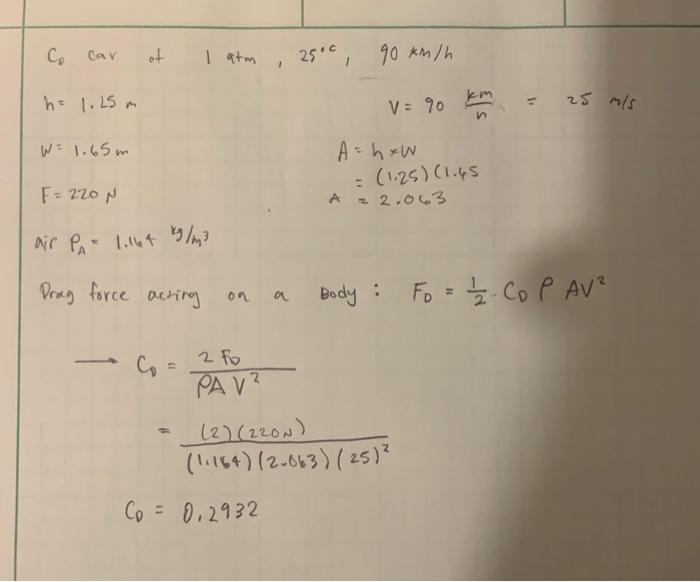 C_D car of 1 atm, 25°C, 90 km/h
h = 1.25 m
V = 90 km/h = 25 m/s
W = 1.65 m
A = h × W
= (1.25)(1.65
F = 220 N
A = 2.063
air ρ_A = 1.164 kg/m³
Drag force acting on a Body: F_D = 1/2 C_D ρ AV²
→ C_D = 2 F_D / ρA V²
= (2)(220N) / (1.164)(2.063)(25)²
C_D = 0.2932